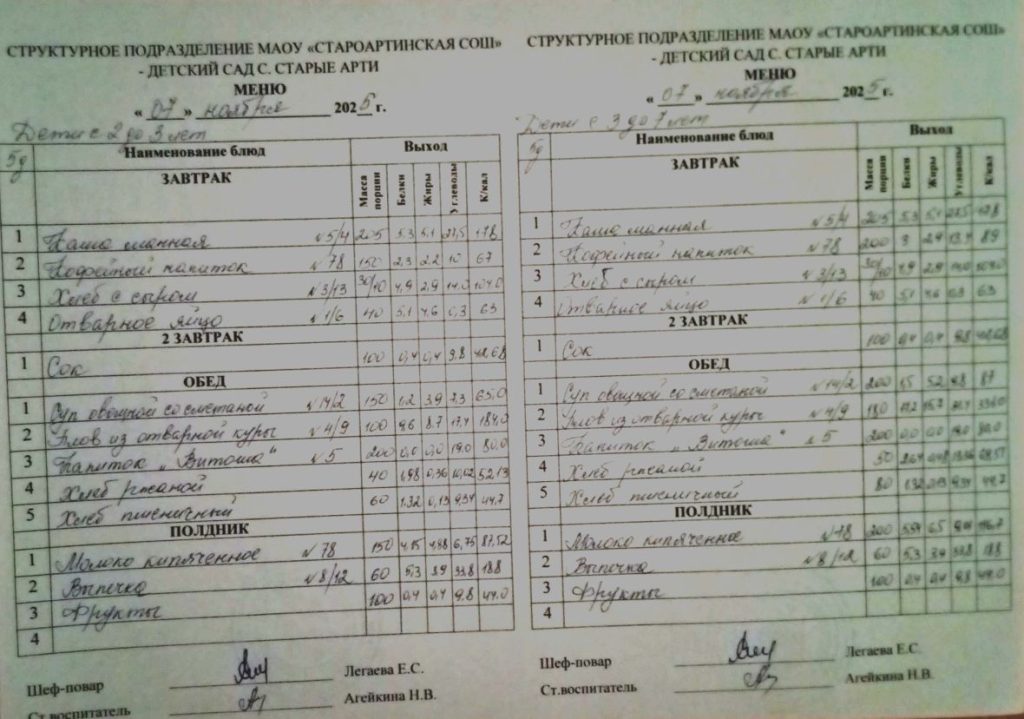 СТРУКТУРНОЕ ПОДРАЗДЕЛЕНИЕ МАОУ «СТАРОАРТИНСКАЯ СОШ»
- ДЕТСКИЙ САД С. СТАРЫЕ АРТИ
МЕНЮ
« 07 » ноября 2025 г.
Дети с 2 до 3 лет
5д Наименование блюд Выход
ЗАВТРАК Масса порции Белки Жиры Углеводы К/кал
1 Каша манная №5/4 205 5.3 5.1 27,5 178
2 Кофейный напиток №78 150 2.3 2.2 10 67
3 Хлеб с сыром №3/13 30/10 4,9 2,9 14.0 104.0
4 Отварное яйцо №1/6 40 5.1 4.6 0,3 63
2 ЗАВТРАК
1 Сок 100 0,4 0,4 9.8 42,68
ОБЕД
1 Суп овощной со сметаной №14/2 150 1.2 3.9 7.3 65.0
2 Плов из отварной куры №4/9 100 9.6 8.7 17,4 184.0
3 Напиток „Витоша" №5 200 0,0 0,0 19.0 80.0
4 Хлеб ржаной 40 1,98 0,36 10,02 52,13
5 Хлеб пшеничный 60 1.32 0,13 9,34 44,7
ПОЛДНИК
1 Молоко кипяченное №78 150 4,15 4,88 6,75 87,52
2 Выпечка №8/12 60 5.3 3.9 33,8 188
3 Фрукты 100 0,4 0,4 9.8 44.0
4
Шеф-повар Легаева Е.С.
Ст.воспитатель Агейкина Н.В.
СТРУКТУРНОЕ ПОДРАЗДЕЛЕНИЕ МАОУ «СТАРОАРТИНСКАЯ СОШ»
- ДЕТСКИЙ САД С. СТАРЫЕ АРТИ
МЕНЮ
« 07 » ноября 2025 г.
Дети с 3 до 7 лет
5д Наименование блюд Выход
ЗАВТРАК Масса порции Белки Жиры Углеводы К/кал
1 Каша манная №5/4 205 5.3 5.1 27,5 178
2 Кофейный напиток №78 200 3 2.9 13.4 89
3 Хлеб с сыром №3/13 30/10 4,9 2,9 14.0 104.0
4 Отварное яйцо №1/6 40 5.1 4.6 0.3 63
2 ЗАВТРАК
1 Сок 100 0,4 0,4 9,8 42,68
ОБЕД
1 Суп овощной со сметаной №14/2 200 1.5 5.2 9.8 87
2 Плов из отварной куры №4/9 180
3 Напиток „Витоша" №5 200 0.0 0.0 19.0 80.0
4 Хлеб ржаной 50
5 Хлеб пшеничный 80 1.32 0,13 9,34 44,7
ПОЛДНИК
1 Молоко кипяченное №78 200
2 Выпечка №8/12 60 5.3 3.9 33,8 188
3 Фрукты 100 0,4 0,4 9.8 44.0
4
Шеф-повар Легаева Е.С.
Ст.воспитатель Агейкина Н.В.